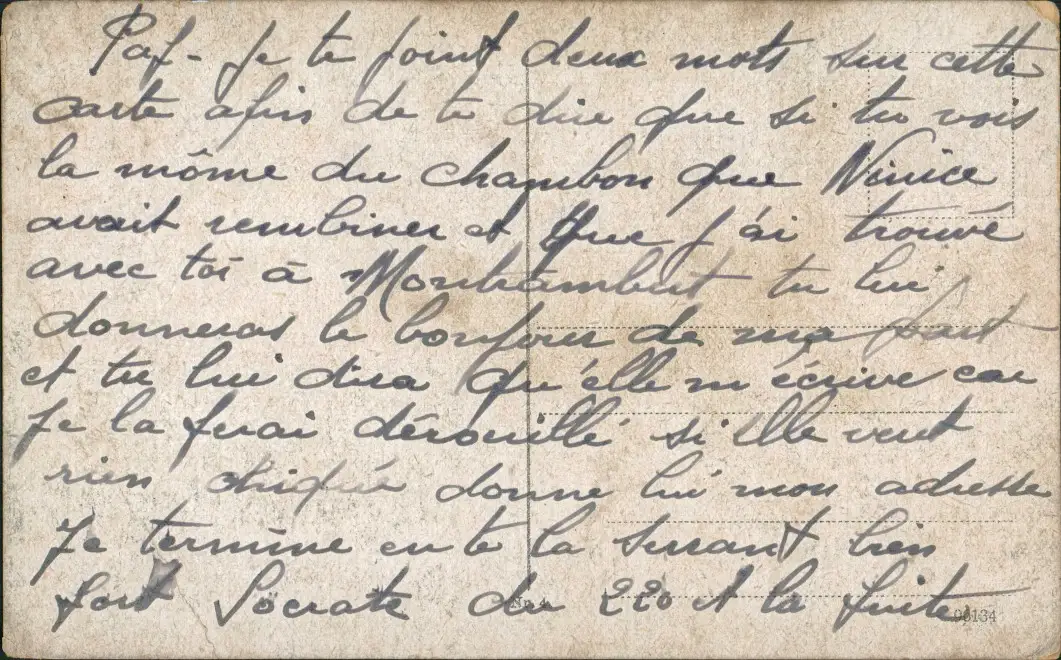 Paf - Je te joint deux mots sur cette
carte afin de te dire que si tu vois
la môme du chambon que Ninice
avait rembiner et que j'ai trouvé
avec toi à Montrambert tu lui
donneras le bonjour de ma part
et tu lui dira qu'elle m'écrive car
je la ferai dérouillé si elle veut
rien chiquée donne lui mon adresse
Je termine en te la serrant bien
fort Socrate du 220 et la fuite
96134